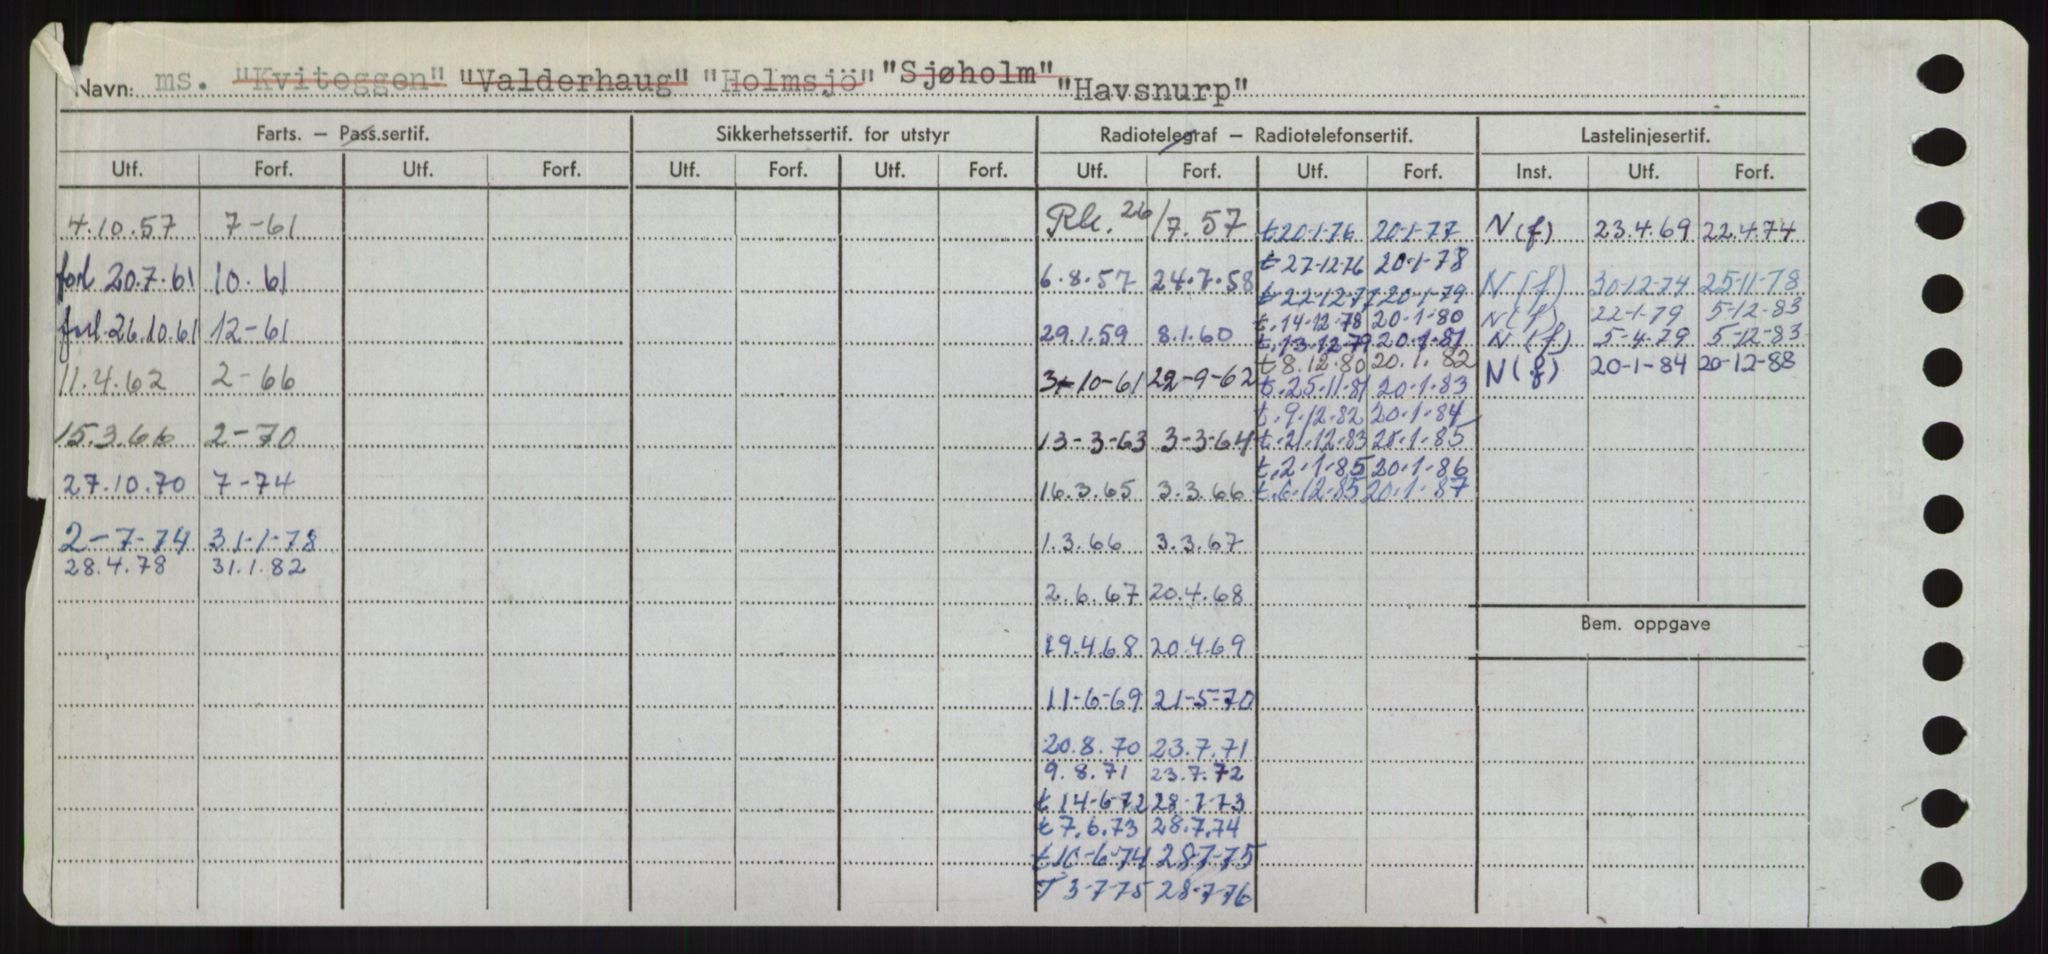 Navn: ms. "Kviteggen" "Valderhaug" "Holmsjö" "Sjøholm" "Havsnurp"
Farts. – Pass.sertif. Sikkerhetssertif. for utstyr Radiotelegraf – Radiotelefonsertif. Lastelinjesertif.
Utf. Forf. Utf. Forf. Utf. Forf. Utf. Forf. Utf. Forf. Utf. Forf. Inst. Utf. Forf.
4.10.57 7-61
forl 20.7.61 10.61
forl 26.10.61 12-61
11.4.62 2-66
15.3.66 2-70
27.10.70 7-74
2-7-74 31-1-78
28.4.78 31.1.82
Rk. 26/7.57
6.8.57 24.7.58
29.1.59 8.1.60
3-10-61 22-9-62
13-3-63 3-3-64
16.3.65 3.3.66
1.3.66 3.3.67
2.6.67 20.4.68
19.4.68 20.4.69
11-6-69 21-5-70
20.8.70 23.7.71
9.8.71 23.7.72
t 14-6-72 28-7-73
t 7.6.73 28.7.74
t 10-6-74 28-7-75
T 3-7-75 28-7-76
t 20-1-76 20-1-77
t 27-12-76 20-1-78
t 22-12-77 20-1-79
t. 14-12-78 20-1-80
t. 13-12-79 20-1-81
t 8.12.80 20.1.82
t. 25.11.81 20.1.83
t. 9.12.82 20.1.84
t. 21.12.83 20.1.85
t. 2.1.85 20.1.86
t. 6.12.85 20.1.87
N(f) 23.4.69 22.4.74
N(f) 30-12-74 25-11-78
N(f) 22-1-79 5-12-83
N(f) 5-4-79 5-12-83
N(f) 20-1-84 20-12-88
Bem. oppgave